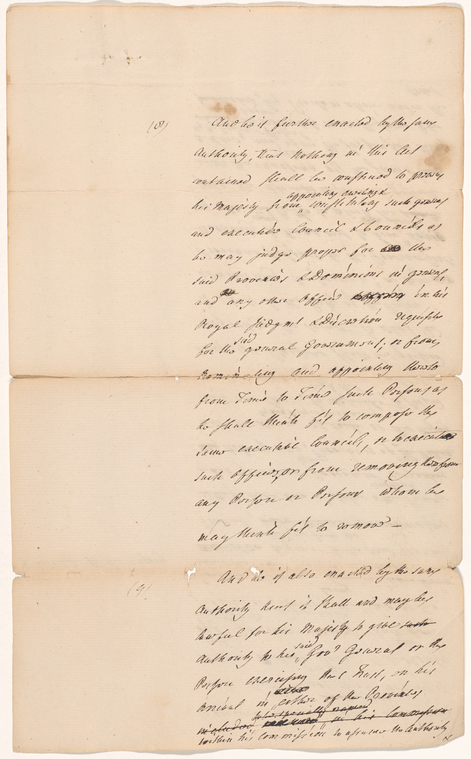 (8) And be it further enacted by the same
Authority, that nothing in this Act
contained shall be construed to prevent
appointing
his Majesty from constituting such general
and executive Council & Councils as
he may judge proper for the
said Provinces & Dominions in general,
and any other Officers in his
Royal Judgmt & Discretion requisite
said
for the general Government; or from
nominating and appointing thereto
from Time to Time such Persons as
he shall think fit to compose the
same executive Council, or to execute
such offices, or from removing therefrom
any Person or Persons whom he
may think fit to remove —
(9) And be it also enacted by the same
Authority that it shall and may be
lawful for his Majesty to give such
said
Authority to his Govr General or the
Person executing that Trust, on his
arrival in either of the Provinces
included in his Commission
within his Commission to assume the Authority